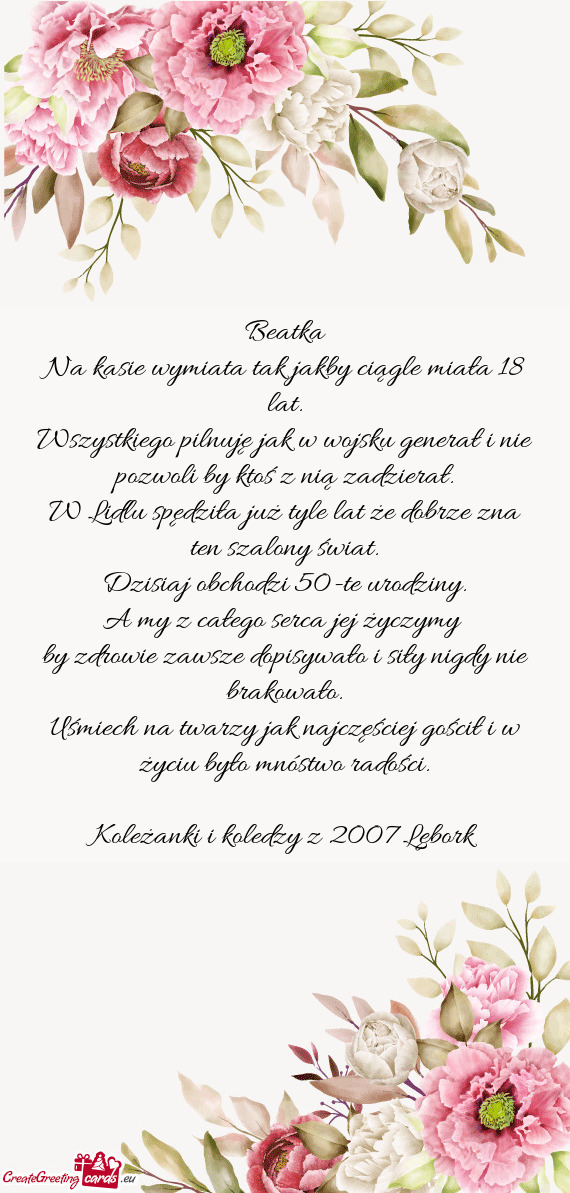 Beatka
Na kasie wymiata tak jakby ciągle miała 18
lat.
Wszystkiego pilnuję jak w wojsku generał i nie
pozwoli by ktoś z nią zadzierał.
W Lidlu spędziła już tyle lat że dobrze zna
ten szalony świat.
Dzisiaj obchodzi 50-te urodziny.
A my z całego serca jej życzymy
by zdrowie zawsze dopisywało i siły nigdy nie
brakowało.
Uśmiech na twarzy jak najczęściej gościł i w
życiu było mnóstwo radości.
Koleżanki i koledzy z 2007 Lębork
CreateGreeting cards .eu